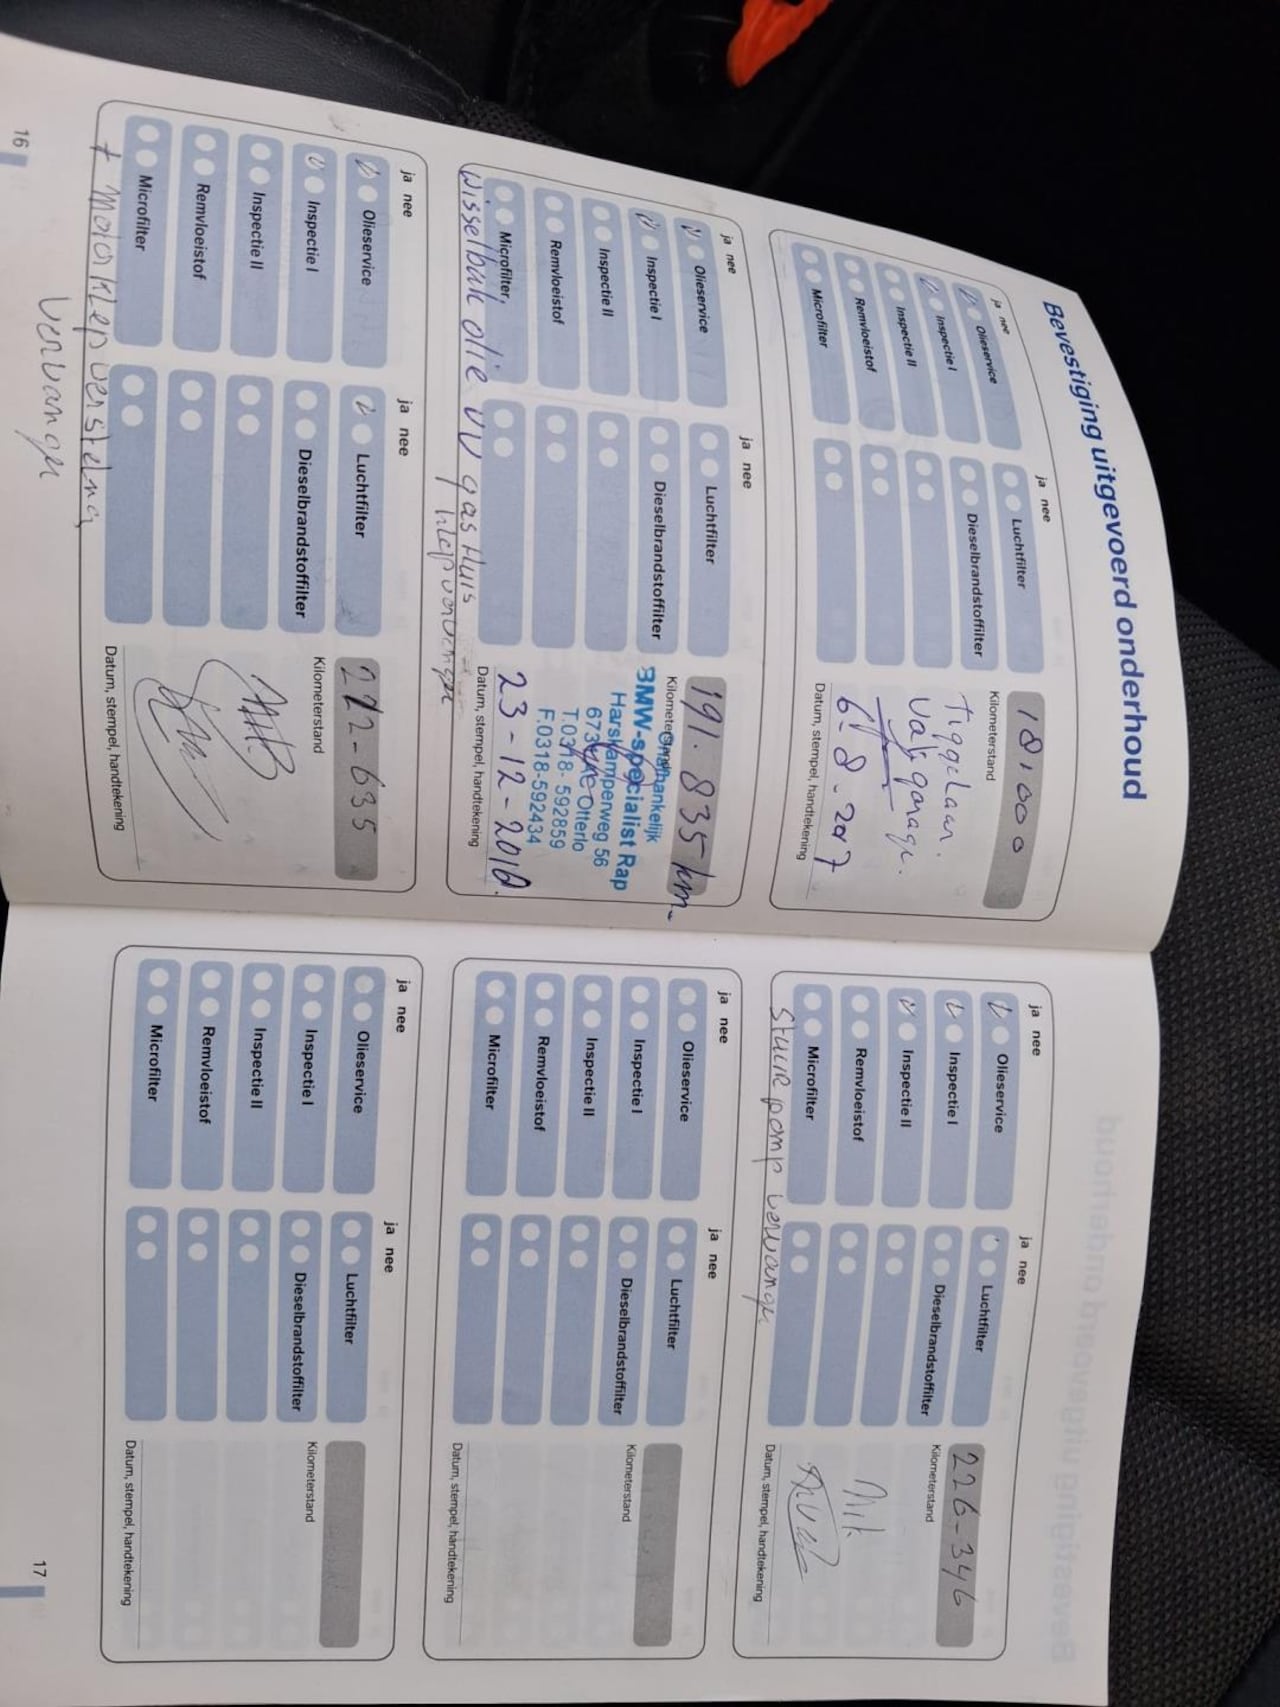 Bevestiging uitgevoerd onderhoud
ja nee
ja nee
Olieservice
Luchtfilter
181.000
Inspectie I
Dieselbrandstoffilter
Kilometerstand
Inspectie II
Tiggelaar.
Remvloeistof
garage.
Microfilter
6-8-2017
Datum, stempel, handtekening
ja nee
ja nee
Olieservice
Luchtfilter
191.835 km-
Inspectie I
Dieselbrandstoffilter
Kilometerstand
Onafhankelijk
Inspectie II
BMW-specialist Rap
Harskamperweg 56
Remvloeistof
Otterlo
T.0318-592859
F.0318-592434
Microfilter
23-12-2018.
Datum, stempel, handtekening
Wisselbak olie VV gashuis
klep vervangen
ja nee
ja nee
Olieservice
Luchtfilter
212-635
Inspectie I
Dieselbrandstoffilter
Kilometerstand
Inspectie II
Remvloeistof
Microfilter
Datum, stempel, handtekening
+ Motorklepversteling
vervangen
16
ja nee
ja nee
Olieservice
Luchtfilter
226-346
Inspectie I
Dieselbrandstoffilter
Kilometerstand
Inspectie II
Remvloeistof
Microfilter
Datum, stempel, handtekening
Stuurpomp vervangen
ja nee
ja nee
Olieservice
Luchtfilter
Inspectie I
Dieselbrandstoffilter
Kilometerstand
Inspectie II
Remvloeistof
Microfilter
Datum, stempel, handtekening
ja nee
ja nee
Olieservice
Luchtfilter
Inspectie I
Dieselbrandstoffilter
Kilometerstand
Inspectie II
Remvloeistof
Microfilter
Datum, stempel, handtekening
17